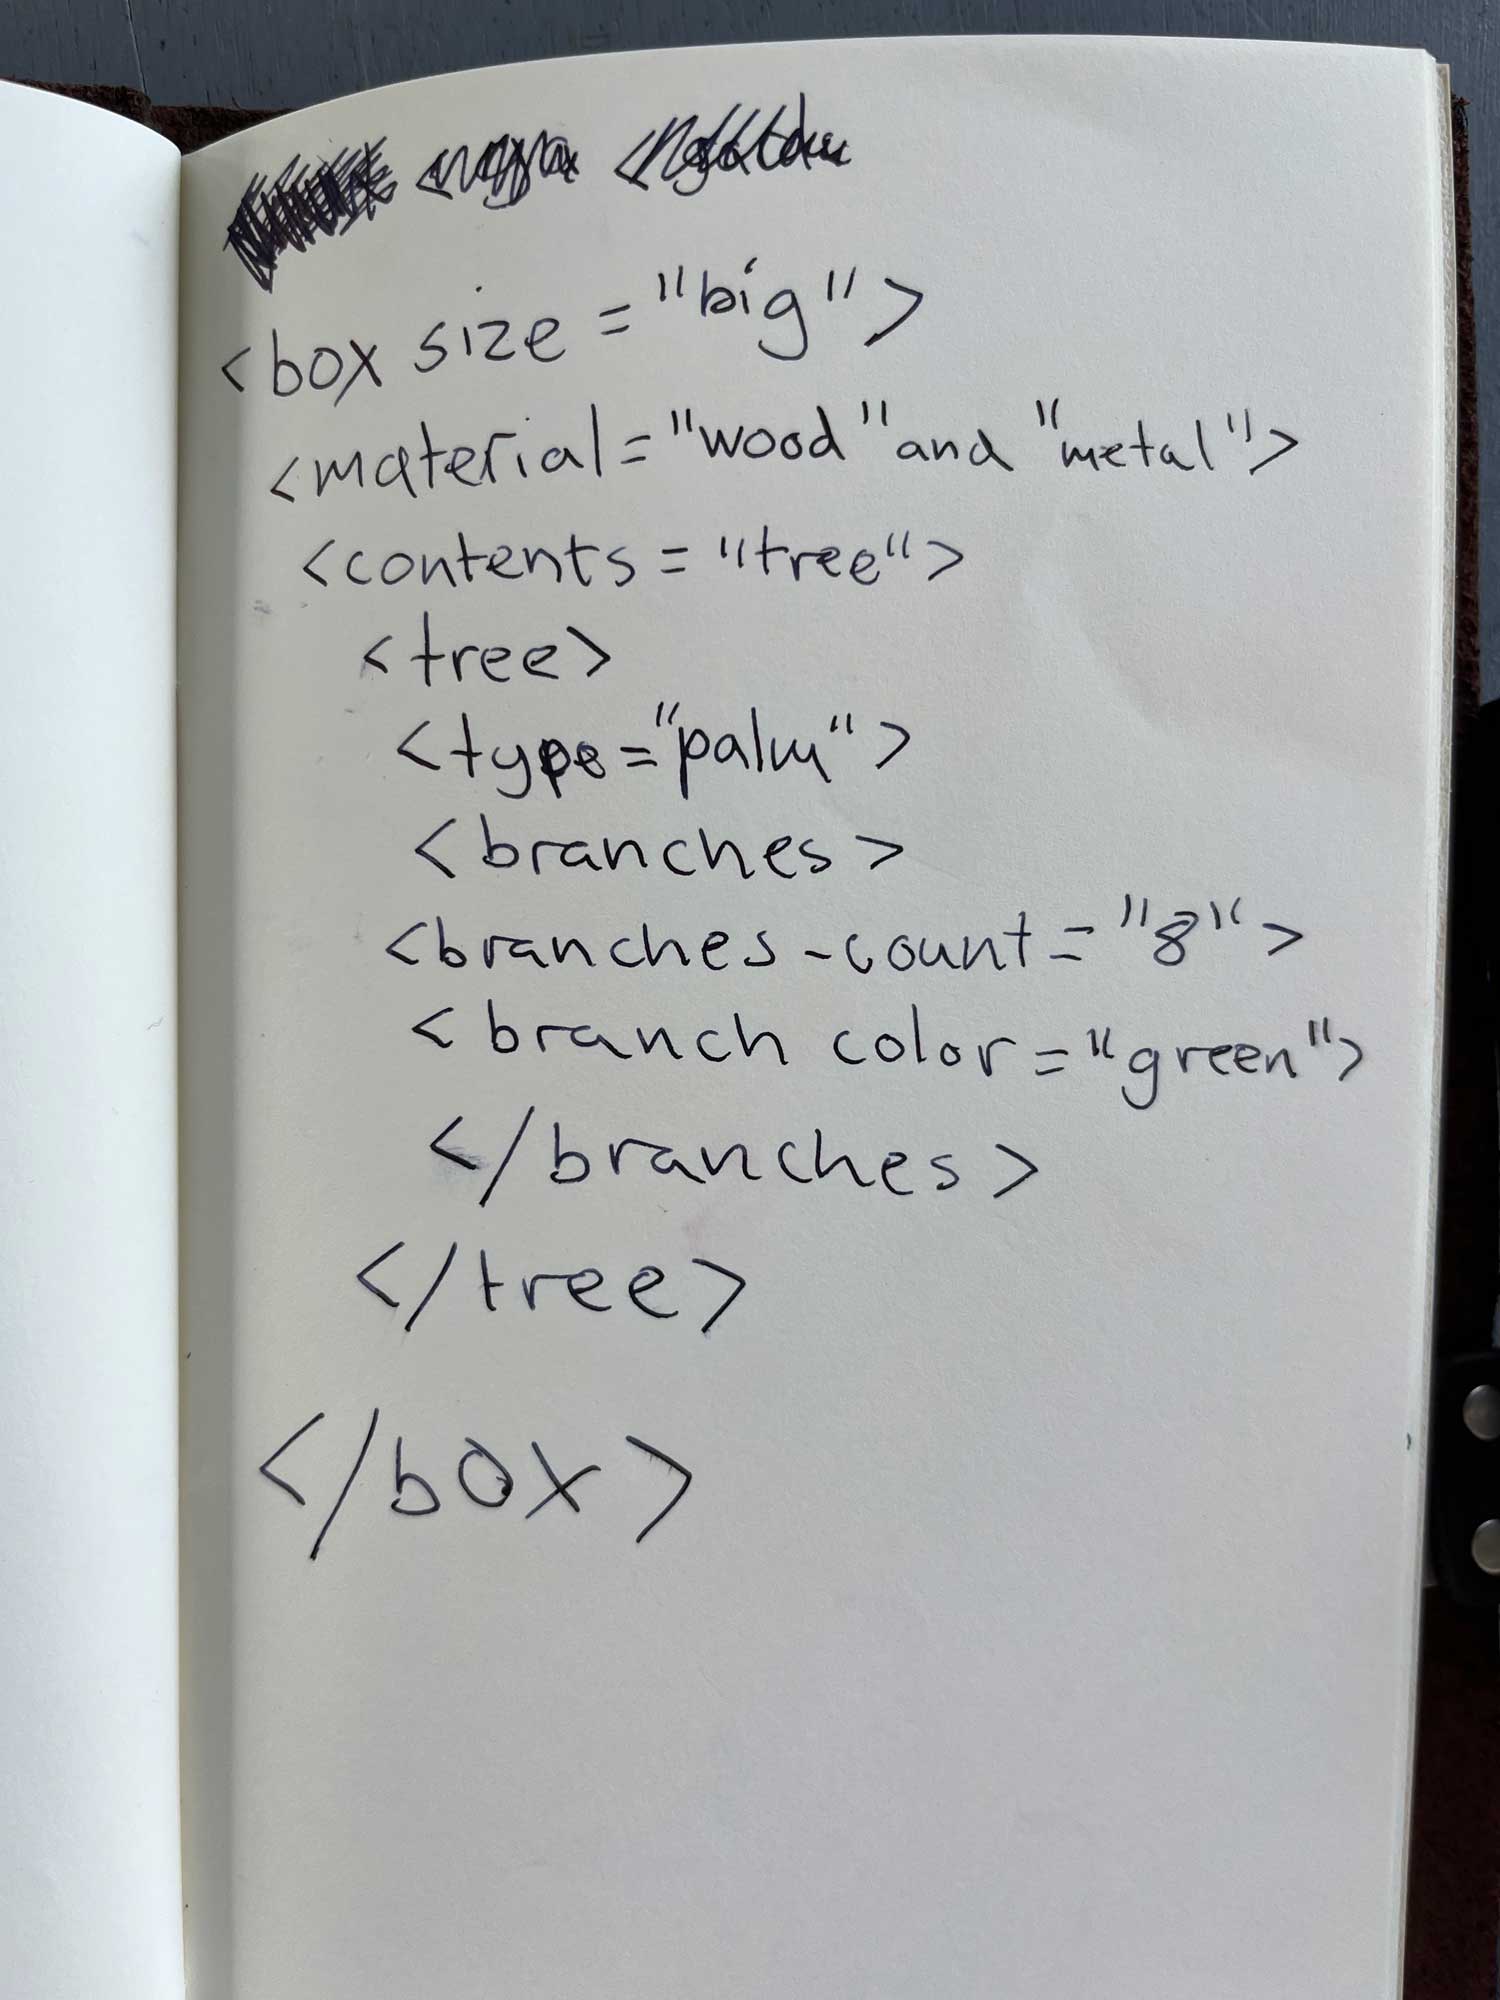 <box size="big">
<material="wood"and "metal">
<contents="tree">
<tree>
<type="palm">
<branches>
<branches-count="8">
<branch color="green">
</branches>
</tree>
</box>